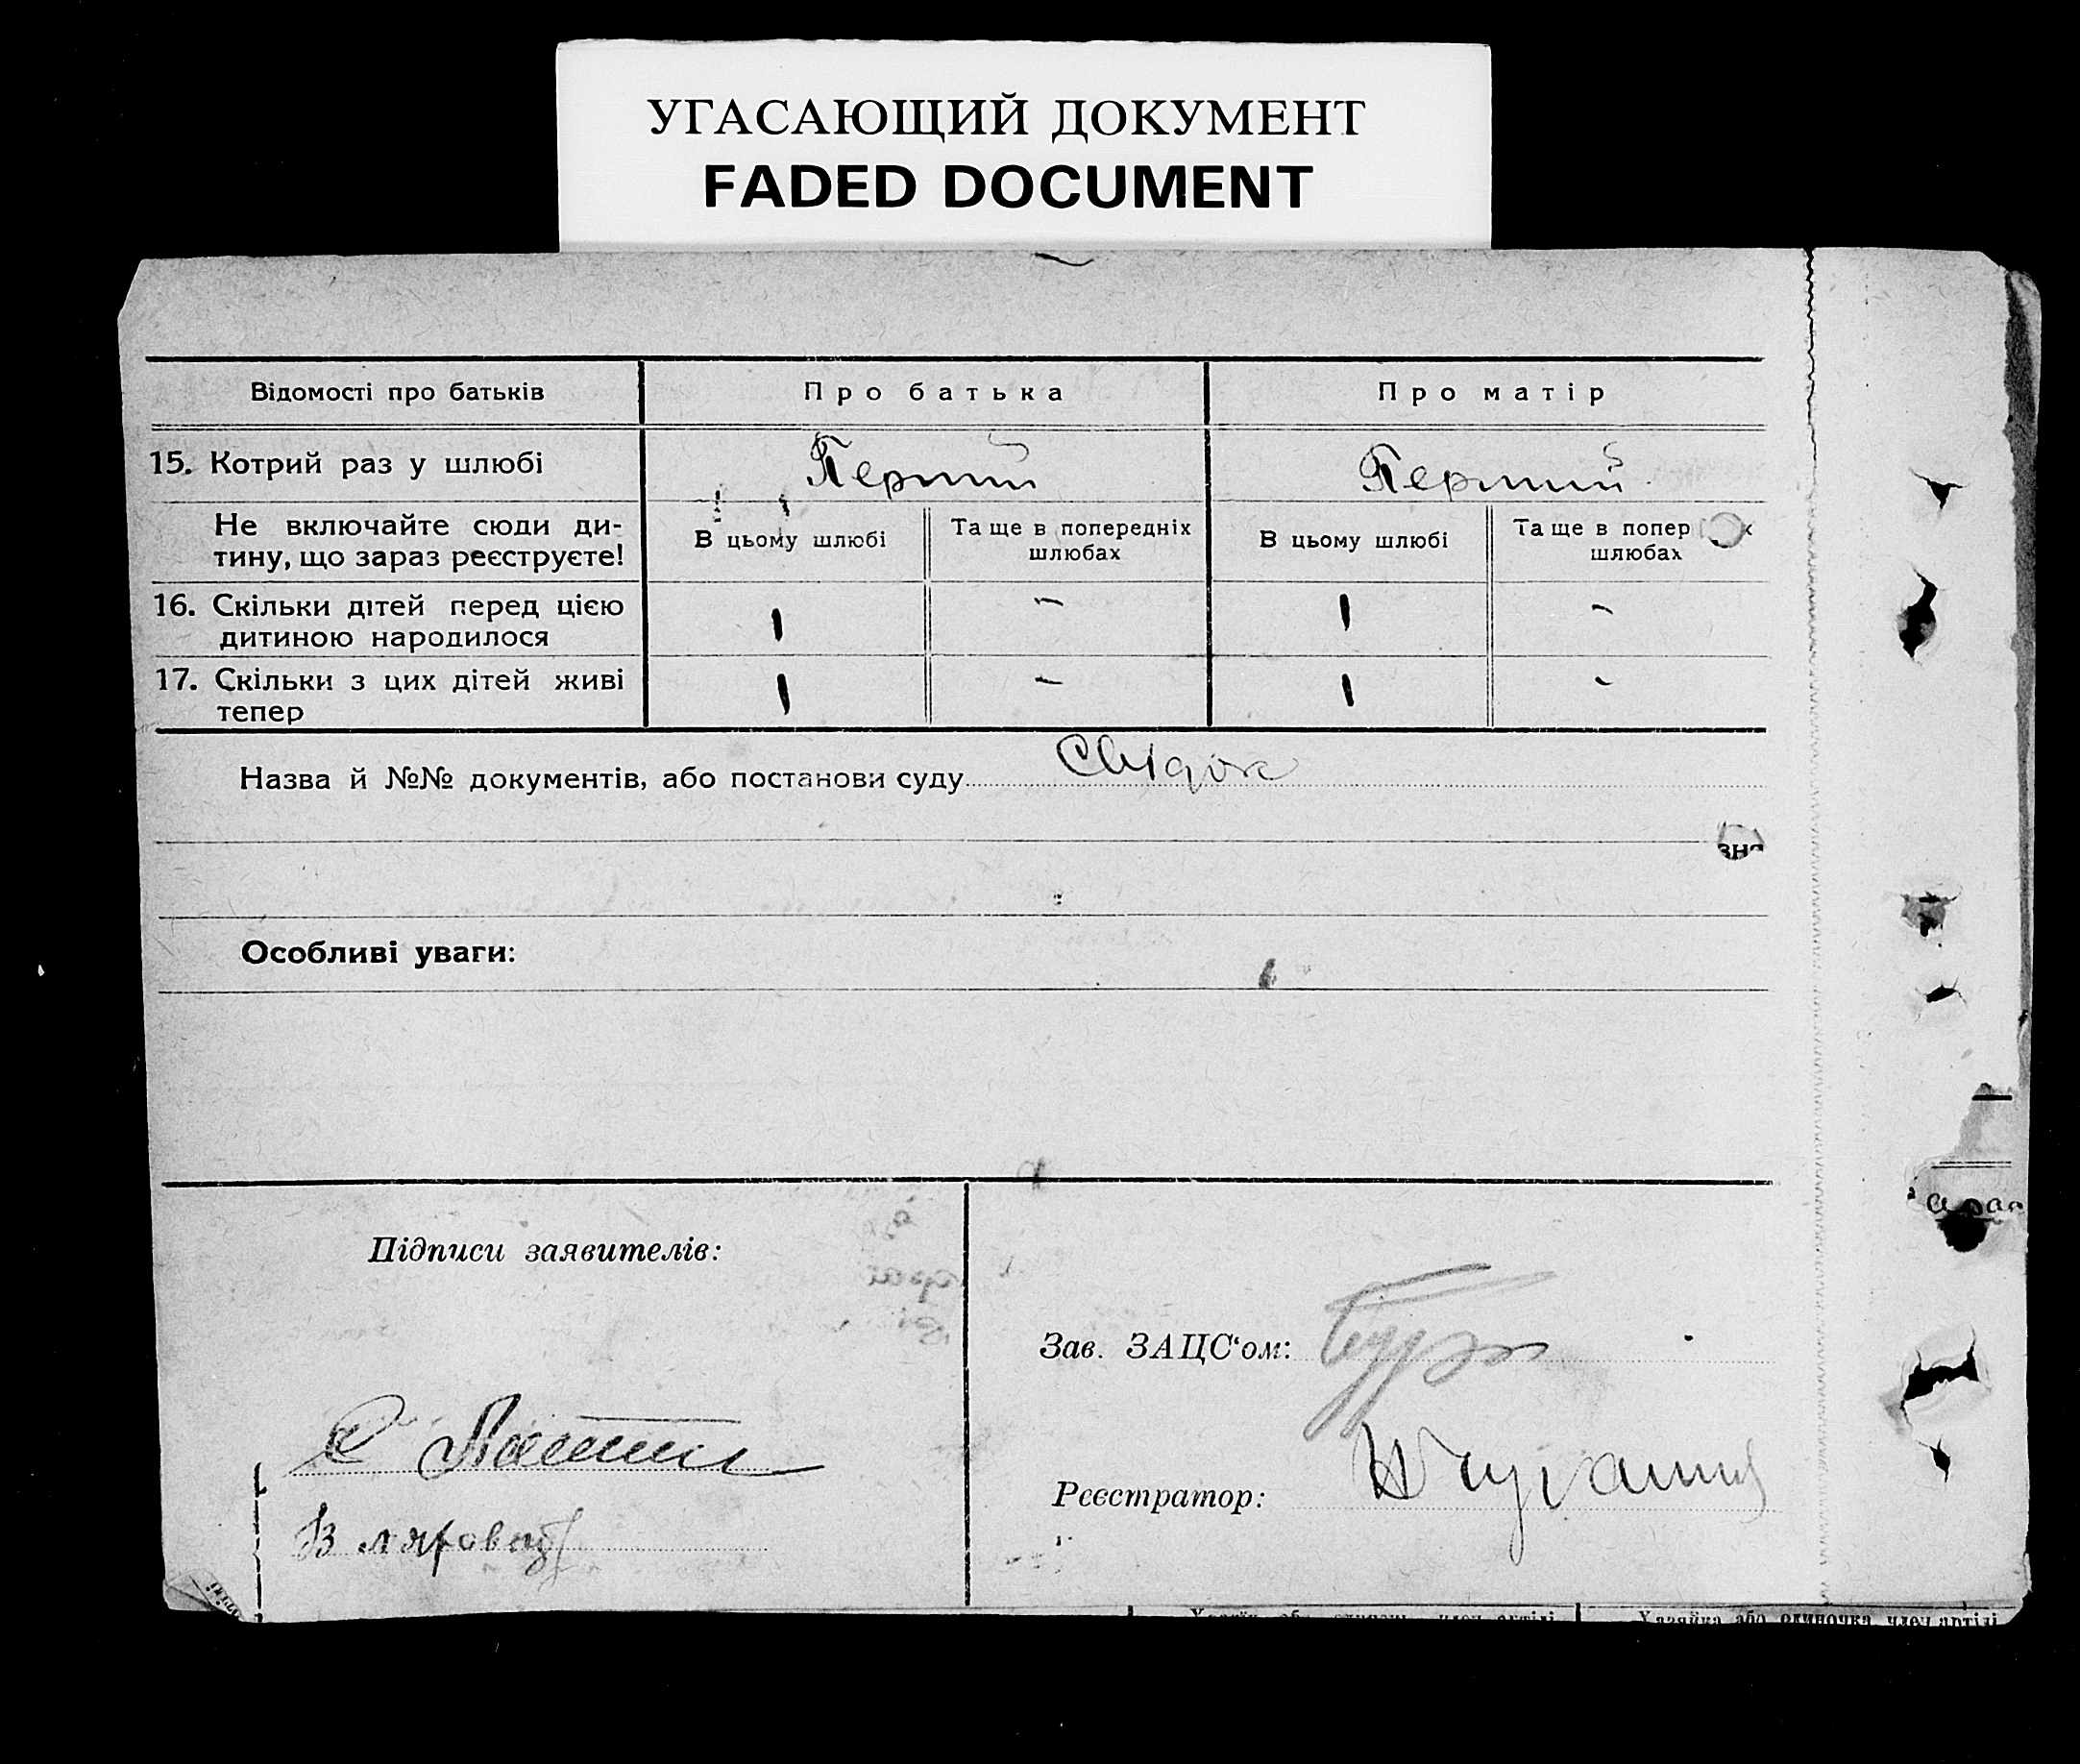 УГАСАЮЩИЙ ДОКУМЕНТ
FADED DOCUMENT
Відомості про батьків Про батька Про матір
15. Котрий раз у шлюбі Перший Перший
Не включайте сюди ди-
тину, що зараз реєструєте!
В цьому шлюбі Та ще в попередніх
шлюбах
В цьому шлюбі Та ще в попер х
шлюбах
16. Скільки дітей перед цією
дитиною народилося
1 - 1 -
17. Скільки з цих дітей живі
тепер
1 - 1 -
Назва й №№ документів, або постанови суду Свідок
зна
Особливі уваги:
Підписи заявителів:
Зав. ЗАЦС‘ом:
Реєстратор:
Хазяїн або одинак член артілі Хазяйка або одиночка член артілі